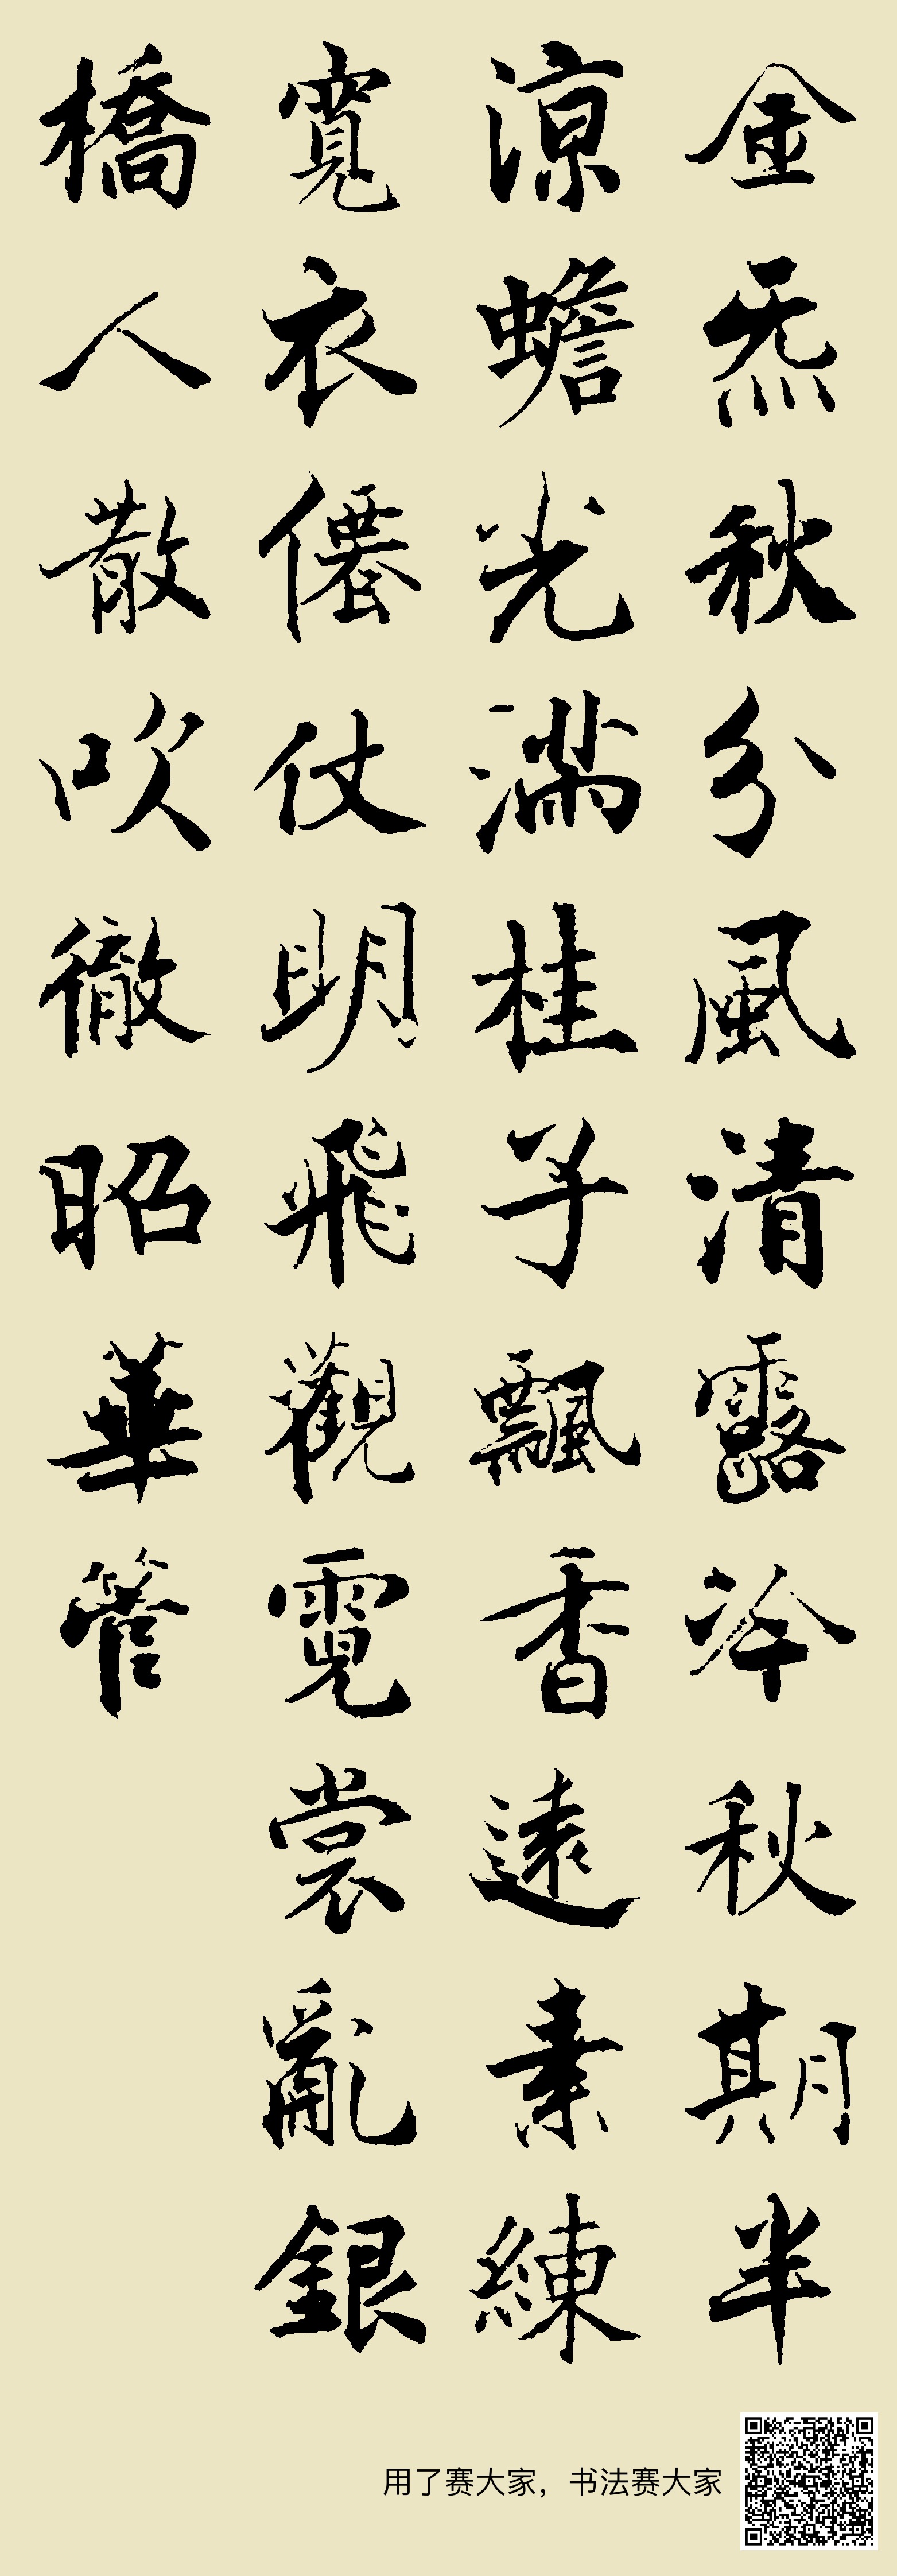 金炁秋分風清露冷秋期半
涼蟾光滿桂子飄香遠素練
寬衣僊仗明飛觀霓裳亂銀
橋人散吹徹昭華管
用了赛大家，书法赛大家